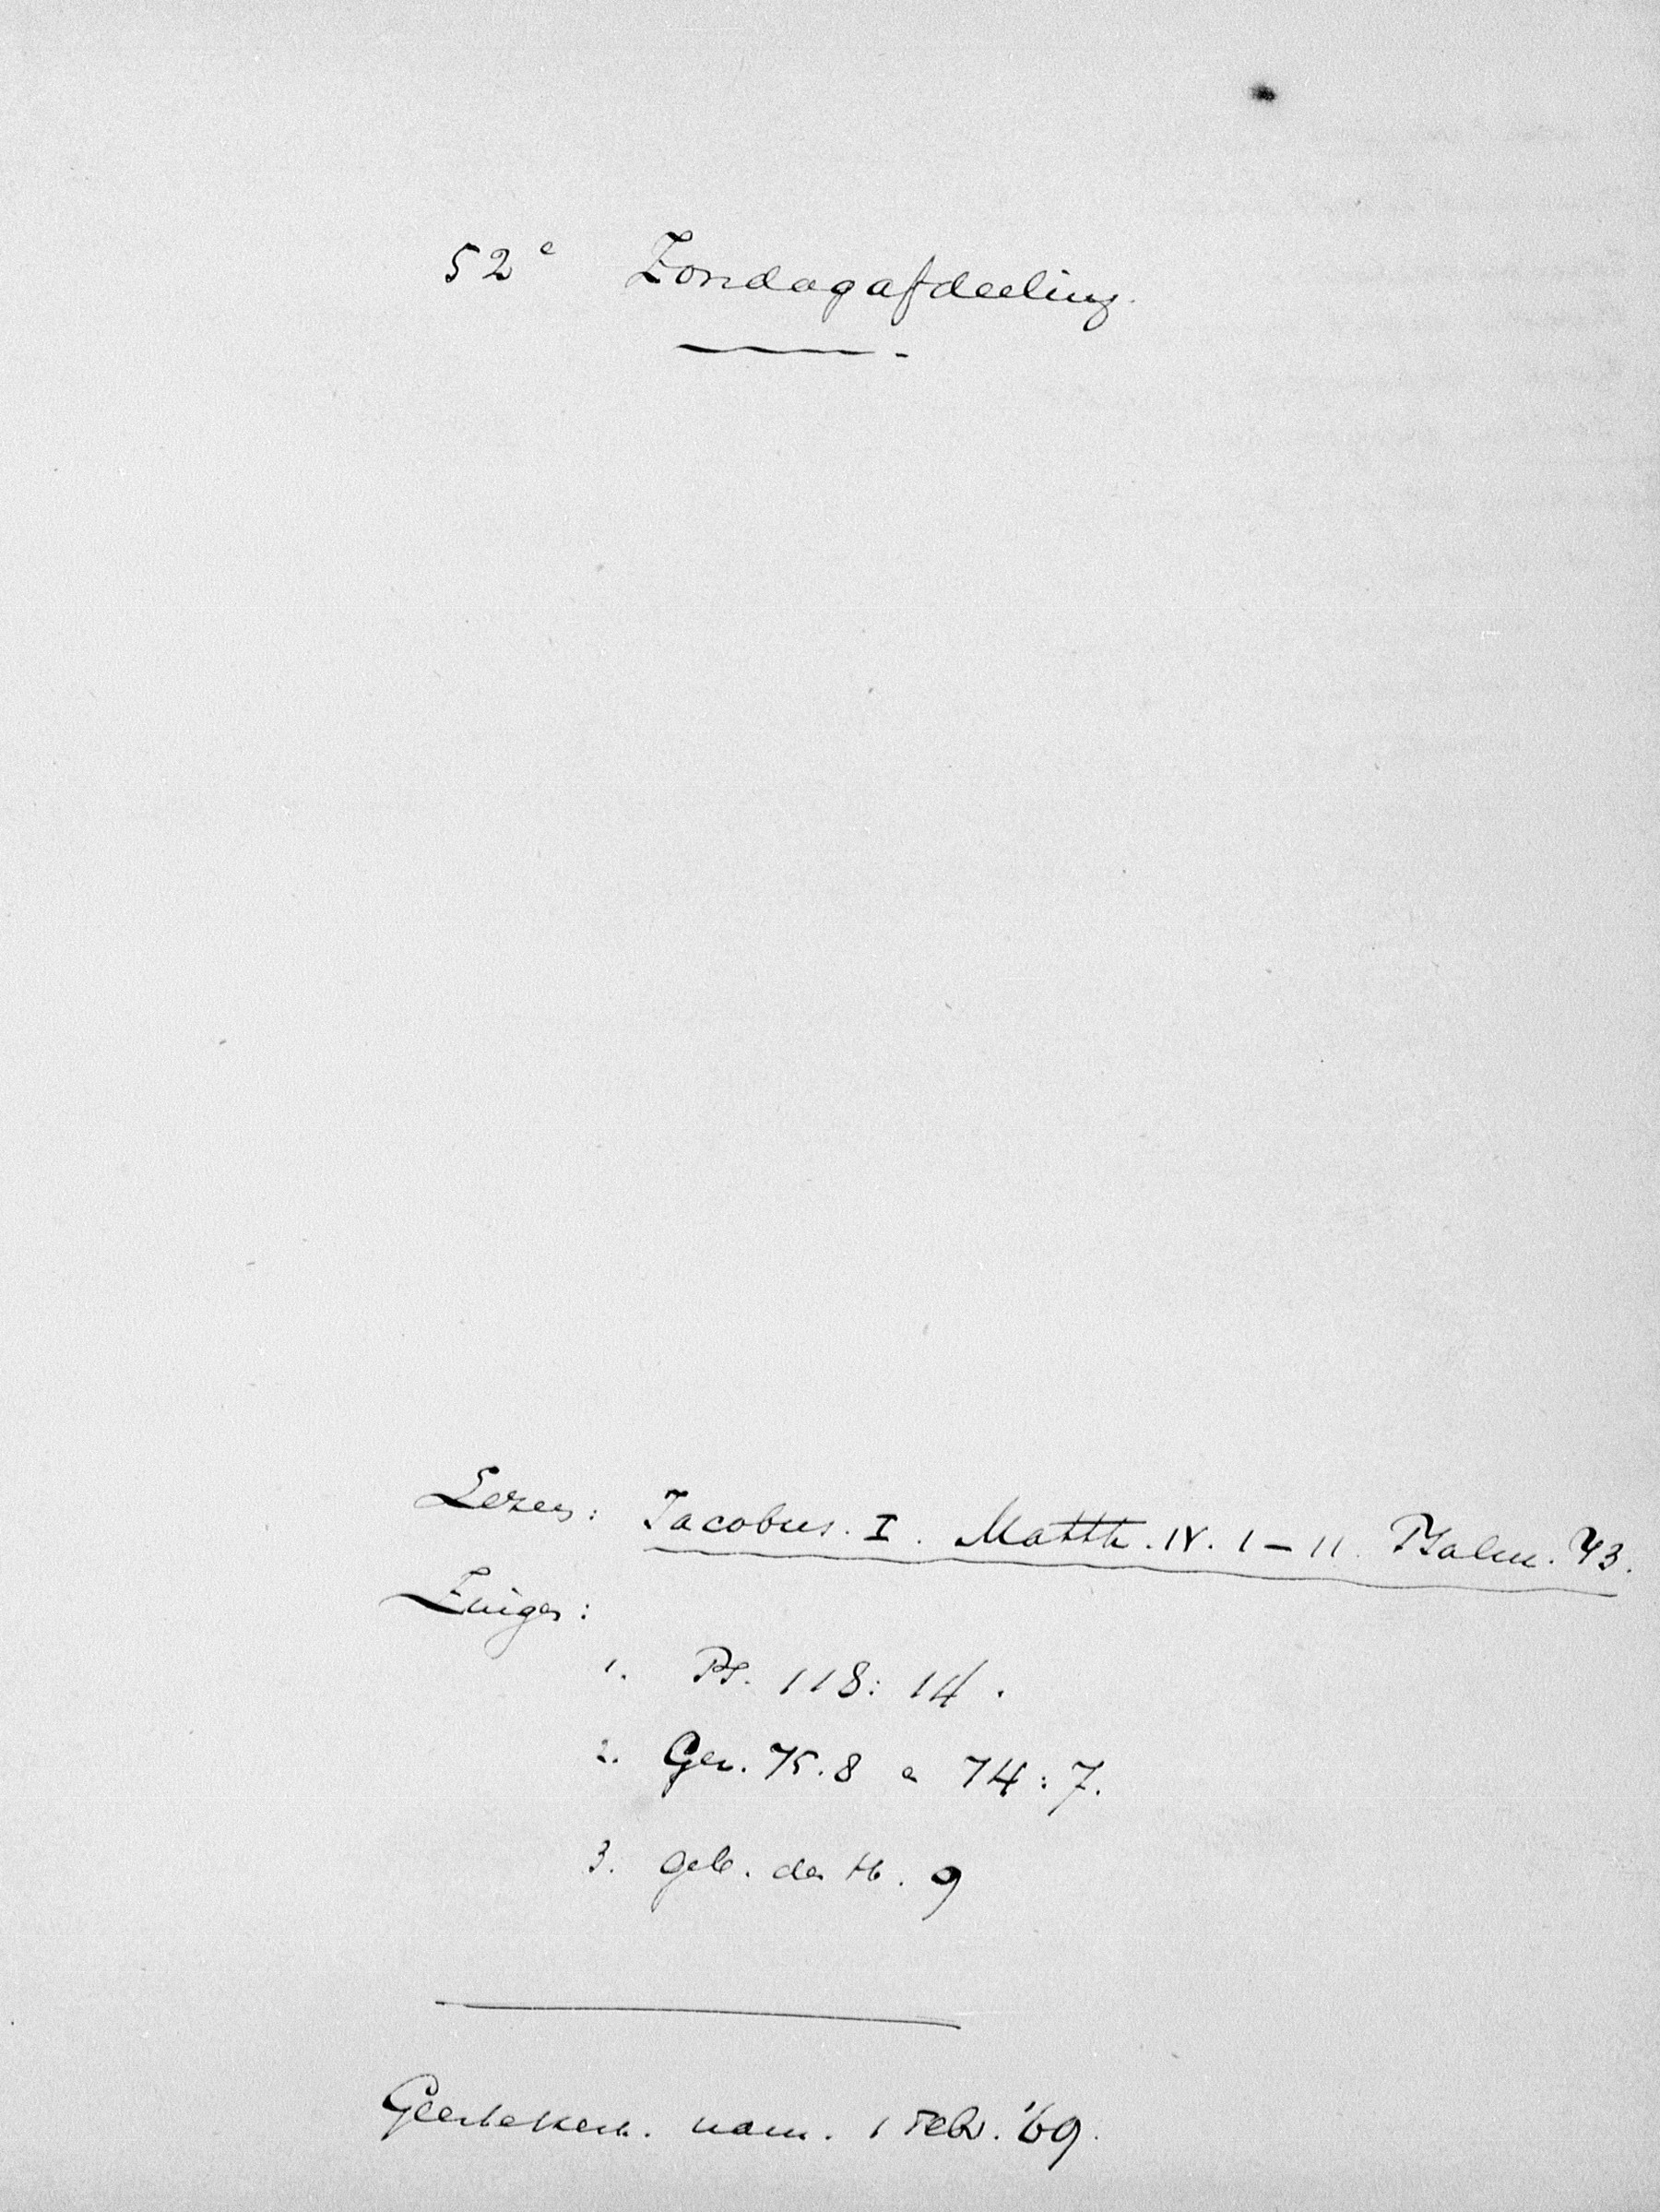 52e Zondagafdeeling.
Lezen: Jacobus. I. Matth. IV. 1 – 11. Psalm. 43.
Zingen:
1. Ps. 118: 14.
2. Gez. 75.8 en 74: 7.
3. Geb. des H. 9
Geertekerk. nam. 1 Febr. '69.